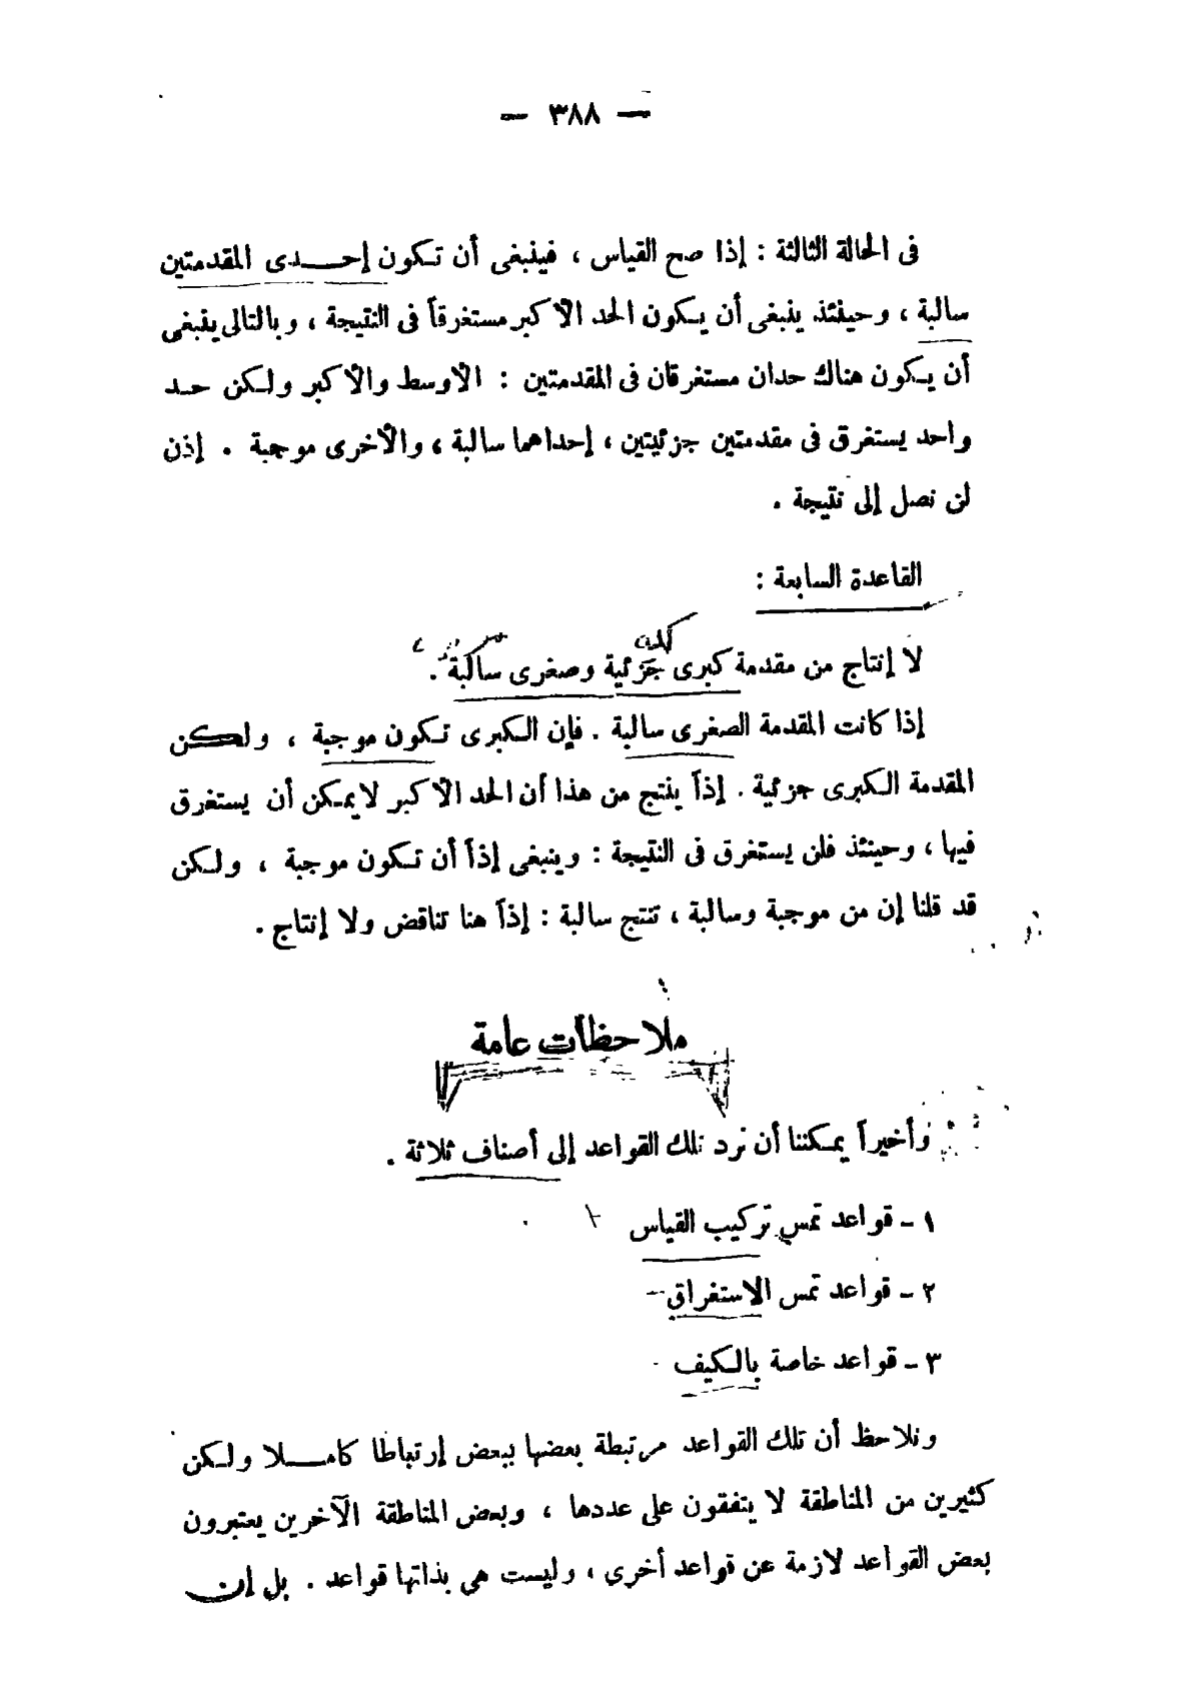 — ٣٨٨ —
فى الحالة الثالثة : إذا صح القياس ، فينبغى أن تكون إحدى المقدمتين
سالبة ، وحينئذ ينبغى أن يكون الحد الأكبر مستغرقاً فى النتيجة ، وبالتالى ينبغى
أن يكون هناك حدان مستغرقان فى المقدمتين : الأوسط والأكبر ولكن حد
واحد يستغرق فى مقدمتين جزئيتين ، إحداهما سالبة ، والأخرى موجبة . إذن
لن نصل إلى نتيجة .
القاعدة السابعة :
لا إنتاج من مقدمة كبرى جزئية وصغرى سالبة .
إذا كانت المقدمة الصغرى سالبة . فإن الكبرى تكون موجبة ، ولكن
المقدمة الكبرى جزئية . إذاً ينتج من هذا أن الحد الأكبر لا يمكن أن يستغرق
فيها ، وحينئذ فلن يستغرق فى النتيجة : وينبغى إذاً أن تكون موجبة ، ولكن
قد قلنا إن من موجبة وسالبة ، تنتج سالبة : إذاً هنا تناقض ولا إنتاج .
ملاحظات عامة
وأخيراً يمكننا أن نرد تلك القواعد إلى أصناف ثلاثة .
١ - قواعد تمس تركيب القياس
٢ - قواعد تمس الاستغراق
٣ - قواعد خاصة بالكيف
ونلاحظ أن تلك القواعد مرتبطة بعضها ببعض إرتباطا كاملا ولكن
كثيرين من المناطقة لا يتفقون على عددها ، وبعض المناطقة الآخرين يعتبرون
بعض القواعد لازمة عن قواعد أخرى ، وليست هى بذاتها قواعد . بل إن